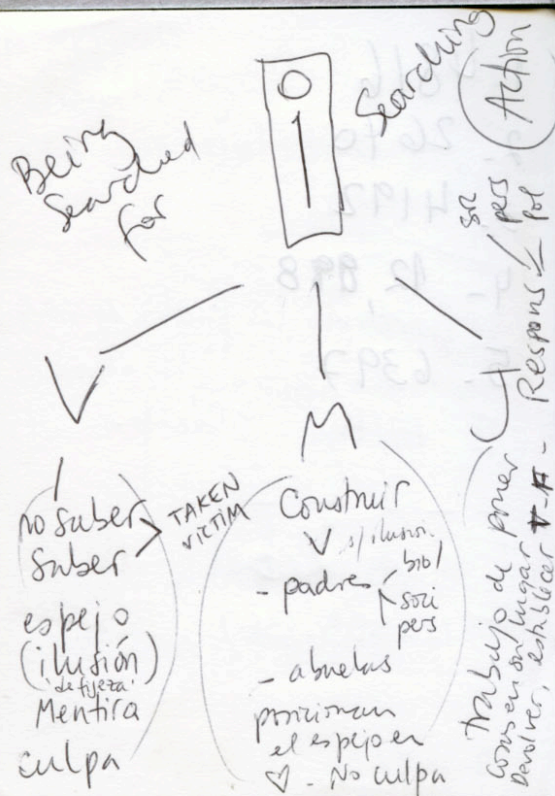 Being
Searched
for
Searching
Action
Respons
soc
pers
pol
V
M
no saber
Saber
TAKEN
VICTIM
espejo
(ilusión)
'de fijeza'
Mentira
culpa
Construir
V s/ilusion.
- padres
biol
soci
pers
- abuelas
posicionan
el espejo en
♡ - No culpa
trabajo de poner
cosas en su lugar
Devolver, establecer